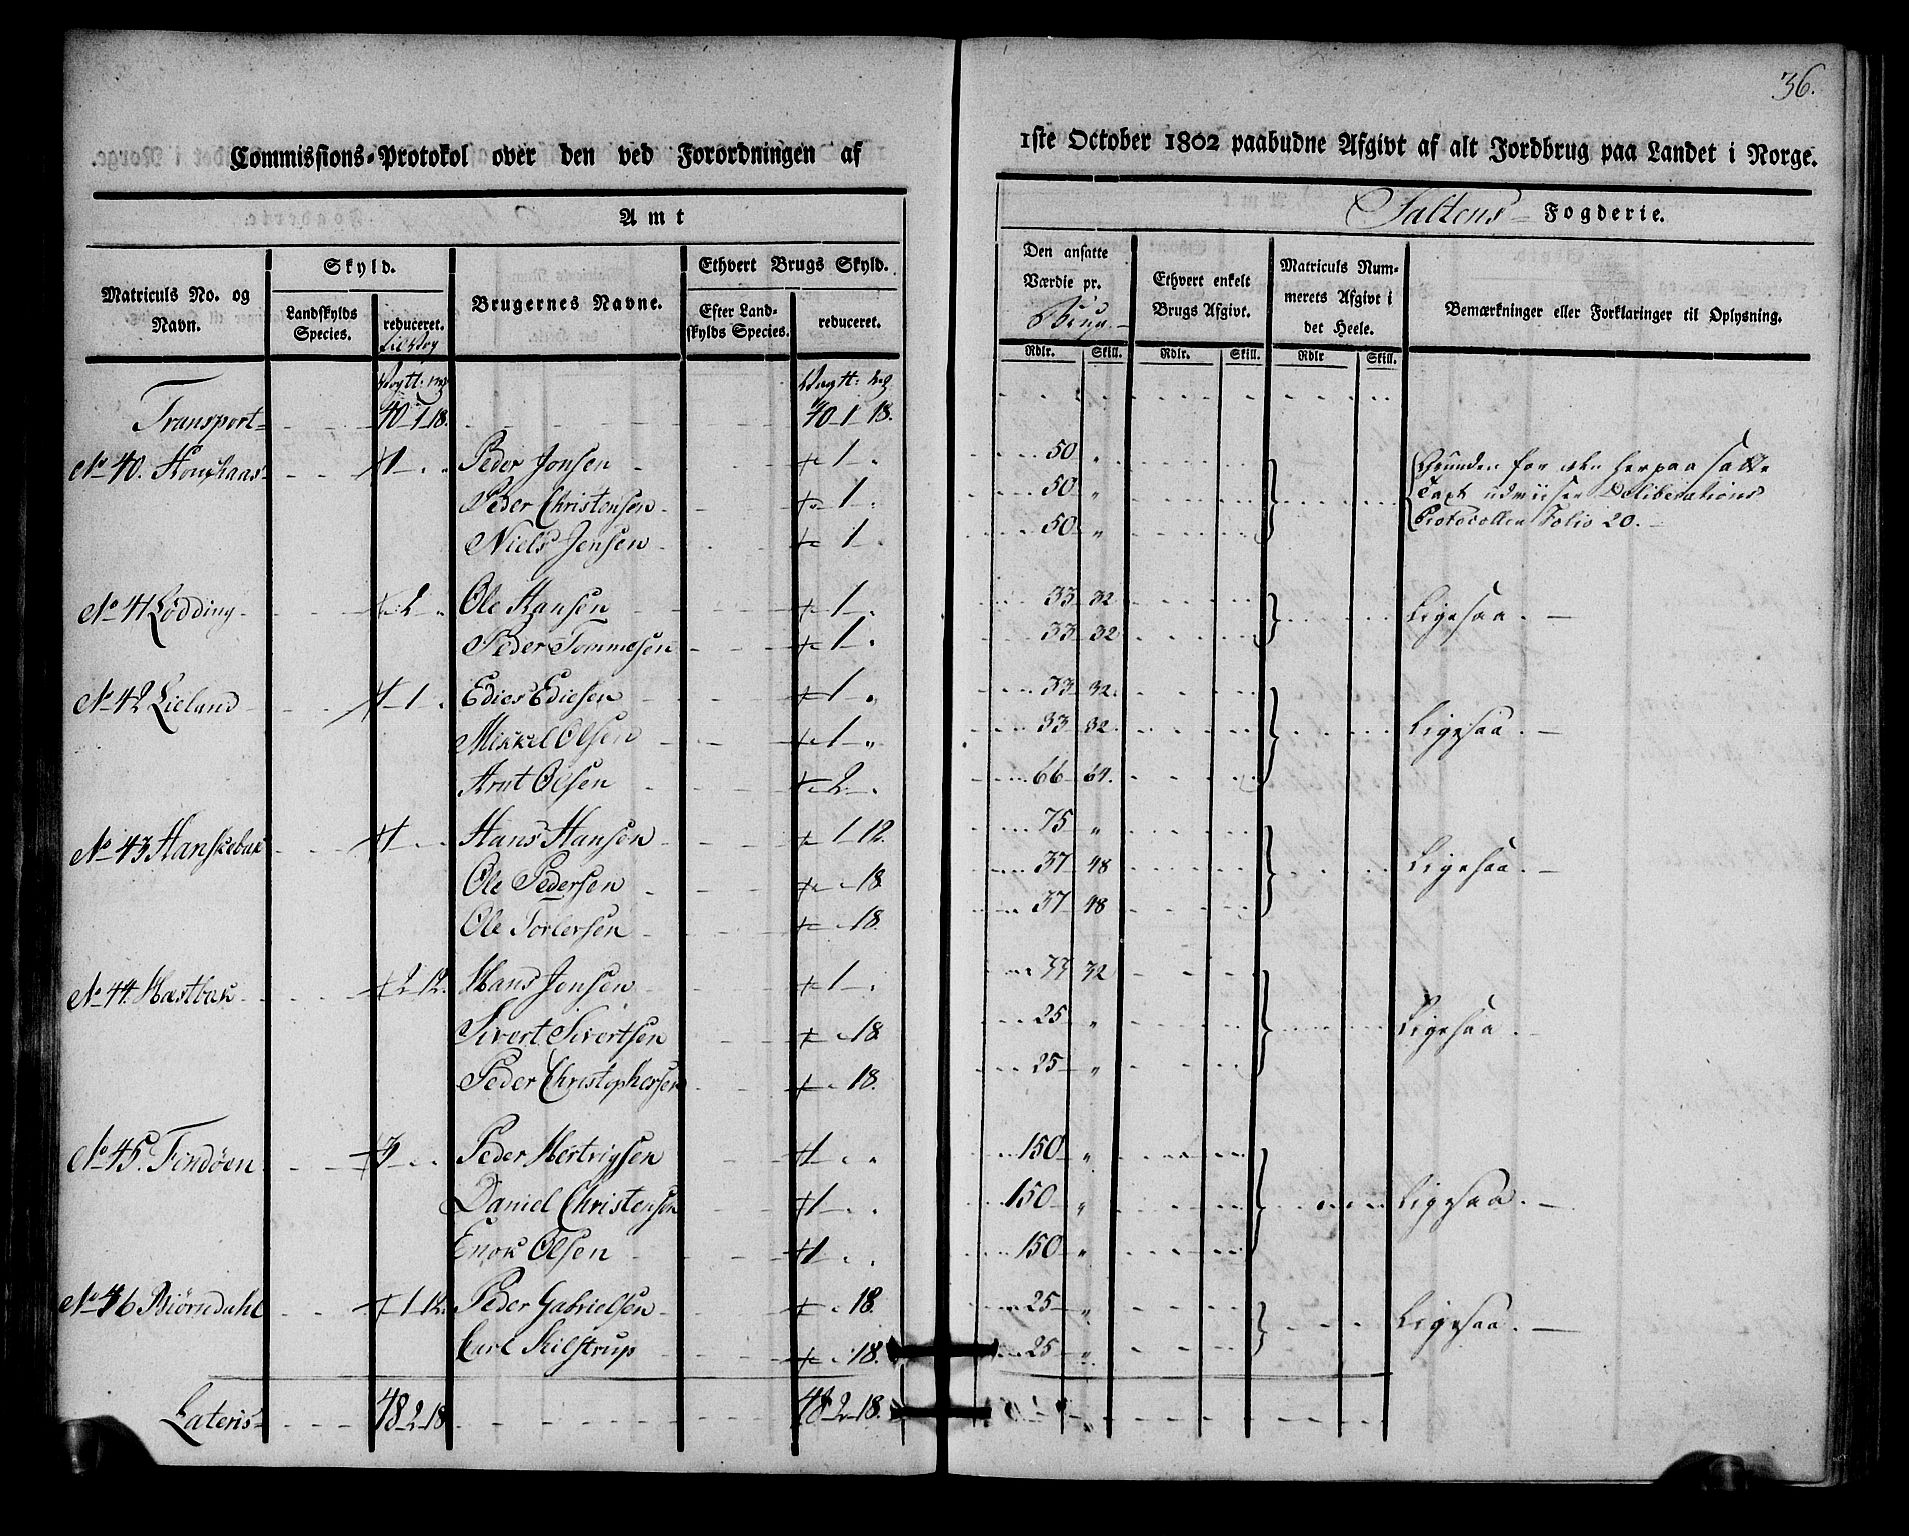 36.
Commissions-Protokol over den ved Forordningen af 1ste October 1802 paabudne Afgivt af alt Jordbrug paa Landet i Norge.
Amt Saltens Fogderie.
Matriculs No. og Navn.
Skyld.
Landskylds Species.
reduceret.
Brugernes Navne.
Ethvert Brugs Skyld.
Efter Landskylds Species.
reduceret.
Den ansatte Værdie pr.
Ethvert enkelt Brugs Afgivt.
Matriculs Nummerets Afgivt i det Heele.
Bemærkninger eller Forklaringer til Oplysning.
Rdlr. Skill. Rdlr. Skill. Rdlr Skill.
Transport 40 1 18. 40 1 18.
No 40. 1 Peder Jonsen 1 50 " Grunden for den herpaa satte
Peder Christensen 1 50 " Taxt udviiser Deliberations
Niels Jensen 1 50 " Protocollen Folio 20.
No 41 Lødding 2 Ole Hansen 1 33 32 Ligesaa.
Peder Tommesen 1 33 32
No 42 Lieland 1 1 Edies Ediesen 1 33 32. Ligesaa.
Mikkel Olsen 1 33 32.
Arnt Olsen 2 66 64.
No 43 Hanskebak 1 Hans Hansen 1 12. 75 " Ligesaa.
Ole Pedersen 18 37 48
Ole Torlersen 18. 37 48
No 44. Mæstbak 2 12. Hans Jonsen 1 32 Ligesaa.
Sivert Sivertsen 18 25 "
Peder Christophersen 18. 25 "
No 45. Findøen 3 Peder Hertvigsen 1 150 " Ligesaa.
Daniel Christensen 1 150 "
Enok Olsen 1 150 "
No 46 Biørndahl 1 12. Peder Gabrielsen 18. 25 " Ligesaa.
Carl Skilstrup 18. 25 "
Lateris 48 2 18 48 2 18.